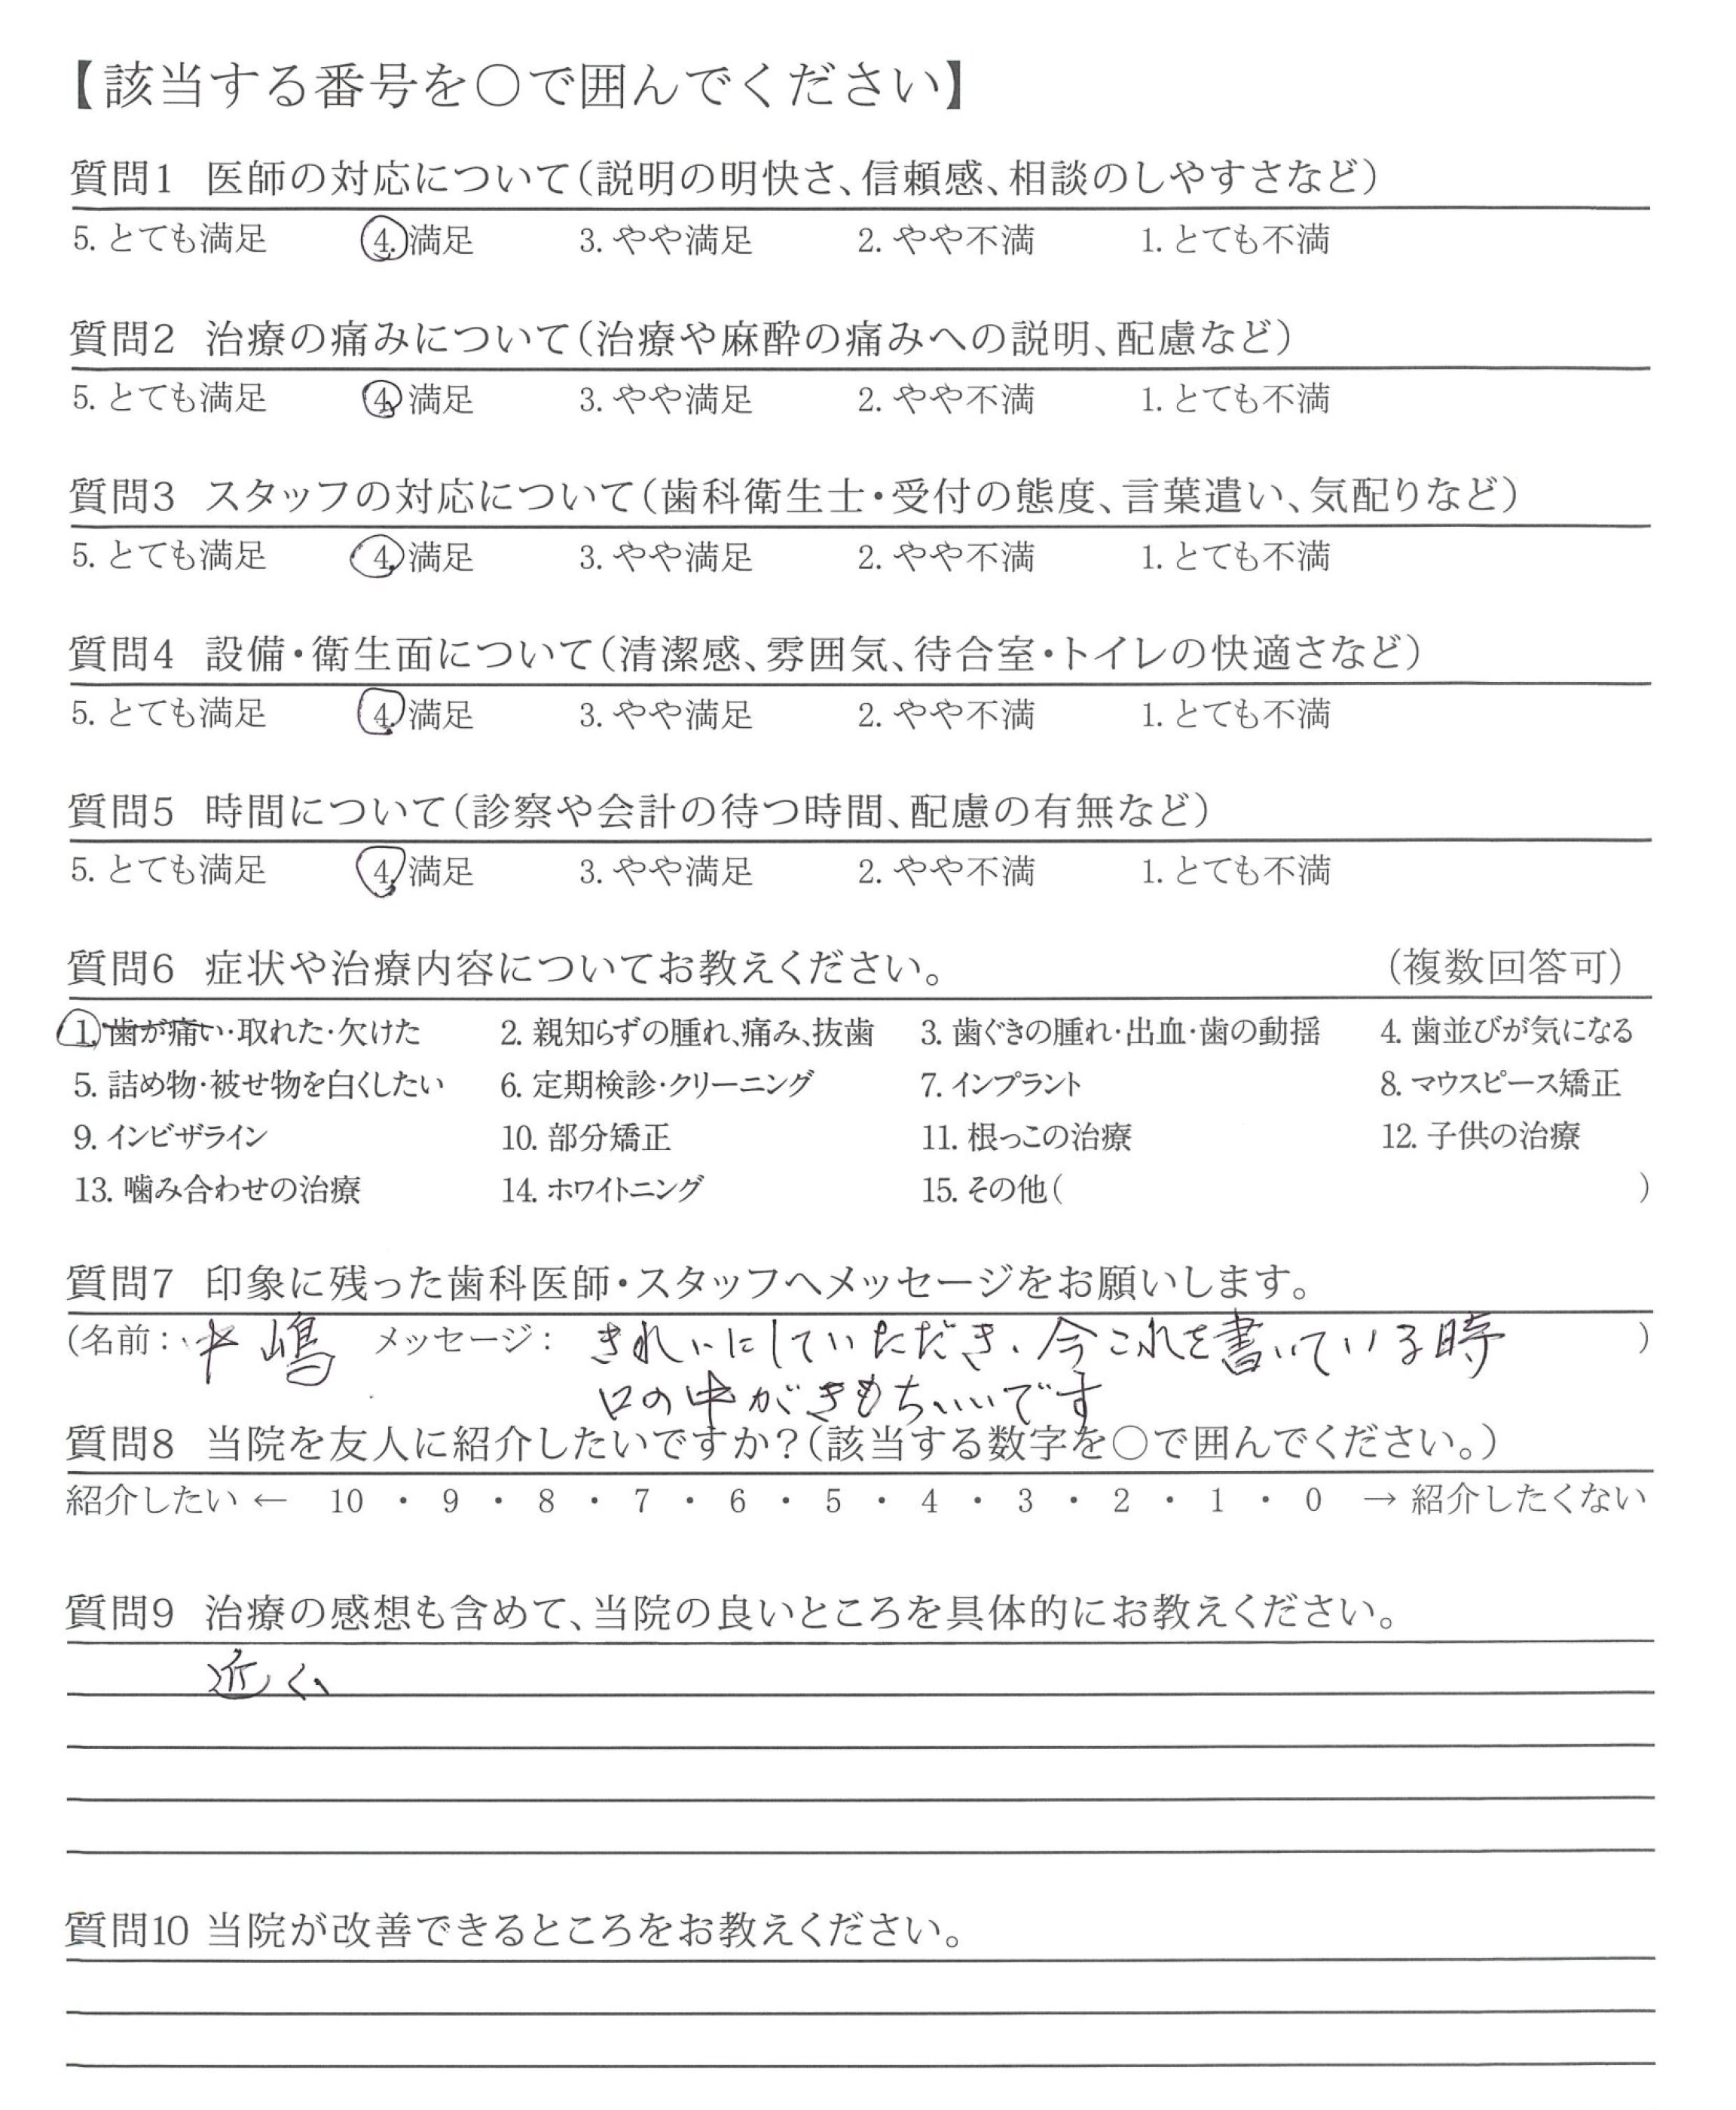 【該当する番号を○で囲んでください】
質問1 医師の対応について(説明の明快さ、信頼感、相談のしやすさなど)
5. とても満足 4. 満足 3. やや満足 2. やや不満 1. とても不満
質問2 治療の痛みについて(治療や麻酔の痛みへの説明、配慮など)
5. とても満足 4. 満足 3. やや満足 2. やや不満 1. とても不満
質問3 スタッフの対応について(歯科衛生士・受付の態度、言葉遣い、気配りなど)
5. とても満足 4. 満足 3. やや満足 2. やや不満 1. とても不満
質問4 設備・衛生面について(清潔感、雰囲気、待合室・トイレの快適さなど)
5. とても満足 4. 満足 3. やや満足 2. やや不満 1. とても不満
質問5 時間について(診察や会計の待つ時間、配慮の有無など)
5. とても満足 4. 満足 3. やや満足 2. やや不満 1. とても不満
質問6 症状や治療内容についてお教えください。 (複数回答可)
1. 歯が痛い・取れた・欠けた 2. 親知らずの腫れ、痛み、抜歯 3. 歯ぐきの腫れ・出血・歯の動揺 4. 歯並びが気になる
5. 詰め物・被せ物を白くしたい 6. 定期検診・クリーニング 7. インプラント 8. マウスピース矯正
9. インビザライン 10. 部分矯正 11. 根っこの治療 12. 子供の治療
13. 噛み合わせの治療 14. ホワイトニング 15. その他( )
質問7 印象に残った歯科医師・スタッフへメッセージをお願いします。
(名前: 中嶋 メッセージ: きれいにしていただき、今これを書いている時 )
口の中がきもちいいです
質問8 当院を友人に紹介したいですか?(該当する数字を○で囲んでください。)
紹介したい ← 10 ・ 9 ・ 8 ・ 7 ・ 6 ・ 5 ・ 4 ・ 3 ・ 2 ・ 1 ・ 0 → 紹介したくない
質問9 治療の感想も含めて、当院の良いところを具体的にお教えください。
近く、
質問10 当院が改善できるところをお教えください。